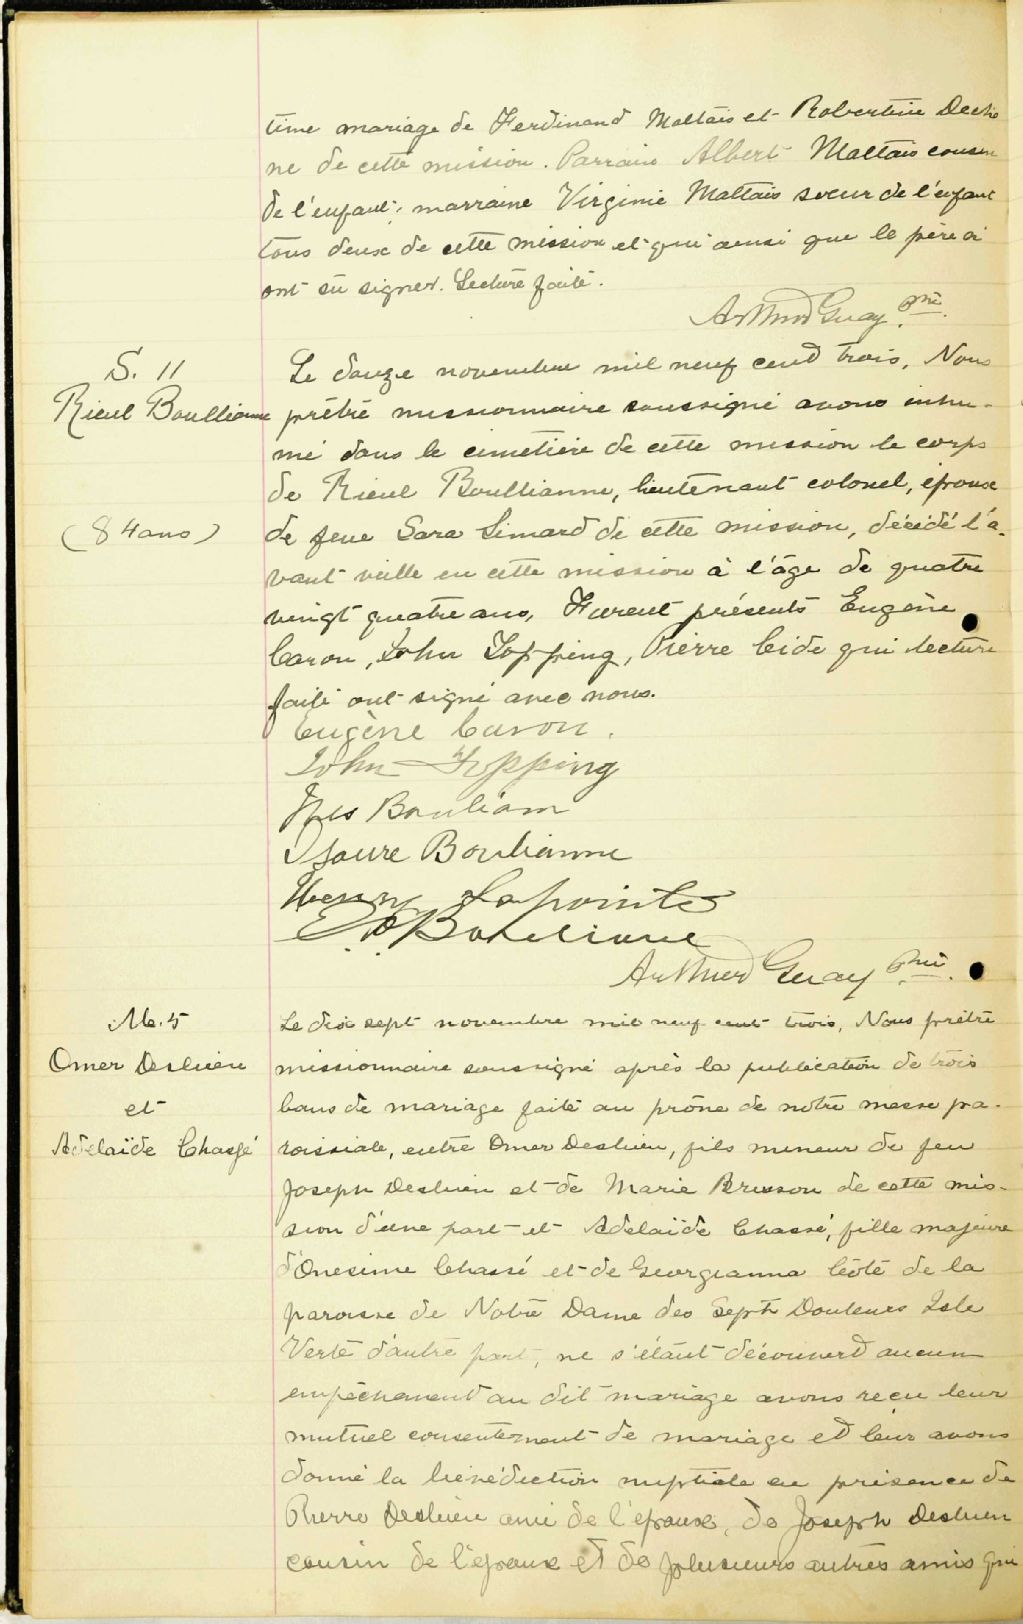 time mariage de Ferdinand Maltais et Robertine Decho
ne de cette mission. Parrain Albert Maltais cousin
de l'enfant; marraine Virginie Maltais soeur de l'enfant
tous deux de cette mission et qui ainsi que le père n'
ont su signer. Lecture faite.
Arthur Guay Ptre
S. 11
Rieul Boullianne
(84 ans)
Le douze novembre mil neuf cent trois, Nous
prêtre missionnaire soussigné avons inhu-
mé dans le cimetière de cette mission le corps
de Rieul Boullianne, lieutenant colonel, époux
de feue Sara Simard de cette mission, décédé l'a-
vant veille en cette mission à l'âge de quatre
vingt quatre ans, Furent présents Eugène
Caron, John Topping, Pierre Cide qui lecture
faite ont signé avec nous.
Eugène Caron.
John Topping
Bouliann
Isaure Boulianne
Henry Lapointe
Boulianne
Arthur Guay Ptre.
M. 5
Omer Deslien
et
Adelaïde Chassé
Le dix sept novembre mil neuf cent trois, Nous prêtre
missionnaire soussigné après la publication de trois
bans de mariage faite au prône de notre messe pa-
roissiale, entre Omer Deslien, fils mineur de feu
Joseph Deslien et de Marie Brisson de cette mis-
sion d'une part et Adelaïde Chassé, fille majeure
d'Onesime Chassé et de Georgianna Côté de la
paroisse de Notre Dame des Sept Douleurs Isle
Verte d'autre part, ne s'étant découvert aucun
empêchement au dit mariage avons reçu leur
mutuel consentement de mariage et leur avons
donné la bénédiction nuptiale en présence de
Pierre Deslien ami de l'époux, de Joseph Deslien
cousin de l'époux et de plusieurs autres amis qui